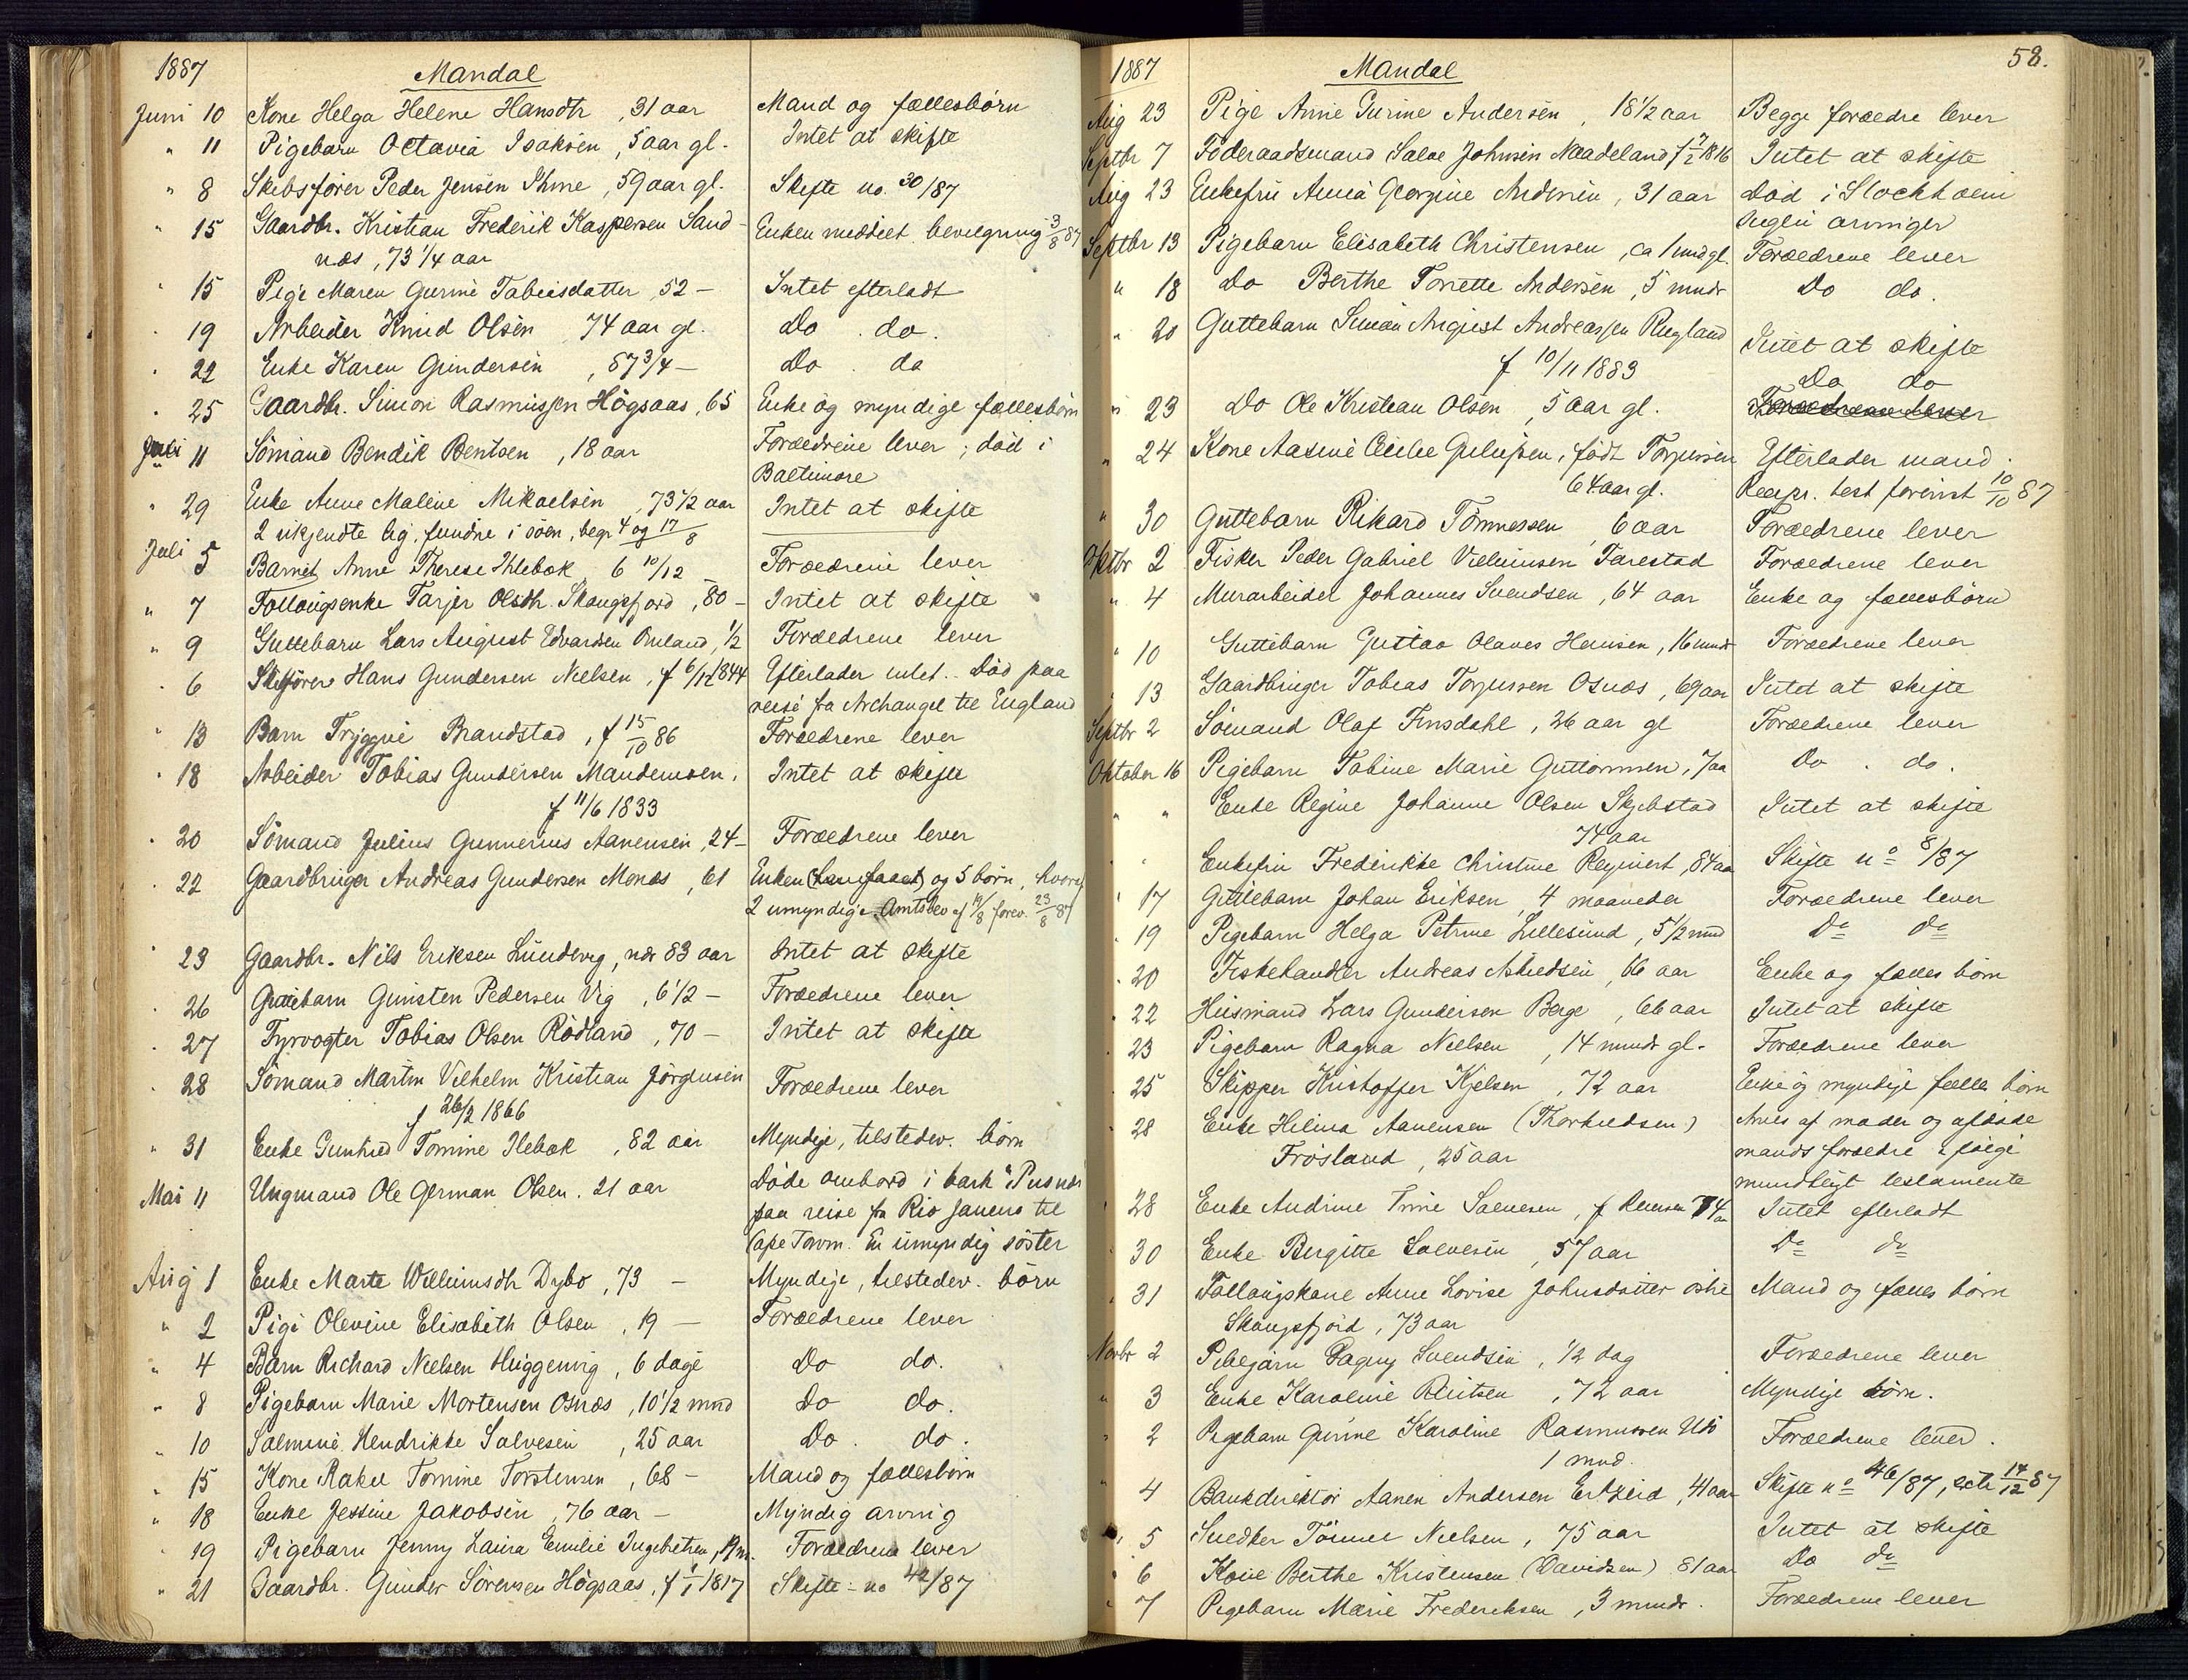 1887 Mandal
Juni 10 Kone Helga Helene Hansdtr, 31 aar Mand og fællesbörn
" 11 Pigebarn Octavia Isaksen, 5 aar gl. Intet at skifte
" 8 Skibsförer Peder Jensen Ihme, 59 aar gl. Skifte no. 30/87
" 15 Gaardbr. Kristian Frederik Kaspersen Sand- Enken meddelt bevilgning 3/8 87
næs, 73 1/4 aar
" 15 Pige Maren Gurine Tobiasdatter 52 - Intet efterladt
" 19 Arbeider Knud Olsen 74 aar gl. Do . do.
" 22 Enke Karen Gundersen, 87 3/4 - Do . do
" 25 Gaardbr. Simon Rasmussen Högsaas, 65 Enke og myndige fællesbörn
Juli 11 Sömand Bendik Bentsen, 18 aar Forældrene lever; död i
Baltimore
" 29 Enke Anne Malene Mikaelsen, 73 1/2 aar Intet at skifte
2 ukjendte lig, fundne i söen, begr 4 og 17/8
Juli 5 Barnet Anne Therese Ihlebæk 6 10/12 - Forældrene lever
" 7 Follaugsenke Tarjer Olsdtr. Skaugsfjord, 80 - Intet at skifte
" 9 Guttebarn Lars August Edvardsen Omland, 1/2 Forældrene lever
" 6 Skibsförer Hans Gundersen Nielsen, f 6/12 1844 Efterlader intet. - Död paa
reise fra Archangel til England
" 13 Barn Tryggve Brandstad, f 15/10 86 Forældrene lever
" 18 Arbeider Tobias Gundersen Mandemoen, Intet at skifte
f 11/6 1833
" 20 Sömand Julius Gunnerius Aanensen, 24 - Forældrene lever
" 22 Gaardbruger Andreas Gundersen Monæs, 61 Enken og 5 börn, hvoraf
2 umyndige. Amtsbev af 19/8 forev. 23/8 87
" 23 Gaardbr. Nils Eriksen Lundevig, nær 83 aar Intet at skifte
" 26 Guttebarn Gunsten Pedersen Vig, 6 1/2 - Forældrene lever
" 27 Fyrvogter Tobias Olsen Rödland, 70 - Intet at skifte
" 28 Sömand Martin Vilhelm Kristian Jörgensen Forældrene lever
f 26/2 1866
" 31 Enke Gunhild Tomine Ilebæk, 82 aar Myndige, tilstedev. börn
Mai 11 Ungmand Ole German Olsen. 21 aar Döde ombord i bark "Pusnæs"
paa reise fra Rio Janeiro til
Cape Town. En umyndig söster
Aug 1 Enke Marte Willumsdtr Dybo, 73 - Myndige, tilstedev. börn
" 2 Pige Olevine Elisabeth Olsen, 19 - Forældrene lever
" 4 Barn Richard Nielsen Huggenvig, 6 dage Do do.
" 8 Pigebarn Marie Mortensen Osnæs, 10 1/2 mnd Do do.
" 10 Salmine Hendrikke Salvesen, 25 aar Do . do.
" 15 Kone Rakel Tomine Torstensen, 68 - Mand og fællesbörn
" 18 Enke Jessine Jakobsen, 76 aar - Myndig arving
" 19 Pigebarn Jenny Laura Emilie Ingebretsen, Forældrene lever
" 21 Gaardbr. Gunder Sörensen Högsaas, f 1/1 1817 Skifte no 42/87
1887 Mandal 58.
Aug 23 Pige Anne Gurine Andersen, 18 1/2 aar Begge forældre lever
Septbr 7 Föderaadsmand Salve Johnsen Naadeland f 7/2 1816 Intet at skifte
Aug 23 Enkefru Anna Georgine Andersen, 31 aar Död i Stockholm
Ingen arvinger
Septbr 13 Pigebarn Elisabeth Christensen, ca 1 mnd gl. Forældrene lever
" 18 Do Berthe Torrette Andersen, 5 mndr Do do.
" 20 Guttebarn Simon August Andreassen Rugland Intet at skifte
f 10/11 1883
" 23 Do Ole Kristian Olsen, 5 aar gl. Do do
Forældrene lever
" 24 Kone Aasine Cecilie Guliksen, födt Torjussen Efterlader mand.
64 aar gl. Recipr. test forevist 10/10 87
" 30 Guttebarn Rikard Tönnessen, 6 aar Forældrene lever
Oktbr 2 Fisker Peder Gabriel Villumsen Tarestad Forældrene lever
" 4 Murarbeider Johannes Svendsen, 64 aar Enke og fællesbörn
" 10 Guttebarn Gustav Olaves Hansen, 16 mndr Forældrene lever
" 13 Gaardbruger Tobias Torjussen Osnæs, 69 aar Intet at skifte
Septbr 2 Sömand Olaf Finsdahl, 26 aar gl Forældrene lever
Oktober 16 Pigebarn Tobine Marie Guttormsen, 7 aa Do . do.
" " Enke Regine Johanne Olsen Skjebstad Intet at skifte
74 aar
" Enkefru Frederikke Christine Reginert, 84 aa Skifte no 8/87
" 17 Guttebarn Johan Eriksen, 4 maaneder Forældrene lever
" 19 Pigebarn Helga Petrine Lillesund, 5 1/2 mnd Do do
" 20 Fiskehandler Andreas Askildsen, 66 aar Enke og fælles börn
" 22 Husmand Lars Gundersen Berge, 66 aar Intet at skifte
" 23 Pigebarn Ragna Nielsen, 14 mndr gl. Forældrene lever
" 25 Skipper Kristoffer Kjelsen, 72 aar Enke og myndige fælles börn
" 28 Enke Helina Aanensen (Thorkildsen) Arves af moder og afdöde
Frösland, 25 aar mands forældre ifölge
mundtligt testamente
" 28 Enke Andrine Trine Salvesen, f 74 aar Intet efterladt
" 30 Enke Birgitte Salvesen, 57 aar Do do
" 31 Follaugskone Anne Lovise Johnsdatter östre Mand og fælles börn
Skaugsfjord, 73 aar
Novbr 2 Pikebarn Dagny Svendsen, 1/2 dag Forældrene lever
" 3 Enke Karoline Bentsen, 72 aar Myndige börn.
" 2 Pigebarn Gurine Karoline Rasmussen Udö Forældrene lever.
1 mnd.
" 4 Bankdirektör Aanen Andersen Ertzeid, 41 aar Skifte no 46/87, extr 14/12 87
" 5 Snedker Tönnes Nielsen, 75 aar Intet at skifte
" 6 Kone Berthe Kristensen (Davidsen) 81 aar Do do
" 7 Pigebarn Marie Frederiksen, 3 mndr. Forældrene lever